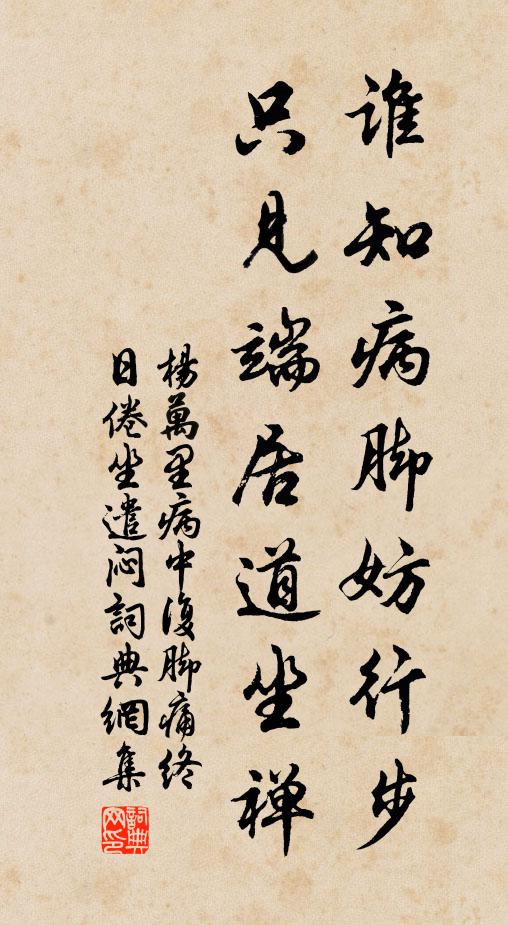 谁知病脚妨行步
只见端居道坐禅
杨萬里病中復脚痛终
日倦坐遣闷詞典網集
詞典网印